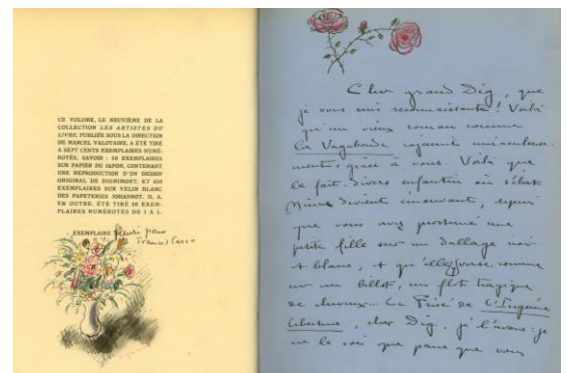 CE VOLUME, LE NEUVIÈME DE LA
COLLECTION LES ARTISTES DU
LIVRE, PUBLIÉE SOUS LA DIRECTION
DE MARCEL VALOTAIRE, A ÉTÉ TIRÉ
A SEPT CENTS EXEMPLAIRES NUMÉ-
ROTÉS, SAVOIR : 50 EXEMPLAIRES
SUR PAPIER DU JAPON, CONTENANT
UNE REPRODUCTION D'UN DESSIN
ORIGINAL DE DIGNIMONT, ET 650
EXEMPLAIRES SUR VÉLIN BLANC
DES PAPETERIES JOHANNOT. IL A,
EN OUTRE, ÉTÉ TIRÉ 50 EXEM-
PLAIRES NUMÉROTÉS DE I A L.
EXEMPLAIRE fleuri pour
Francis Carco
Cher grand Dig, que
je vous suis reconnaissante ! Voilà
qu'un vieux roman comme
La Vagabonde rajeunit miraculeuse-
ment, grâce à vous. Voilà que
le fait-divers enfantin où s'ébat
Minne devient émouvant, depuis
que vous avez prosterné une
petite fille sur un dallage noir
et blanc, et qu'elle pose, comme
sur un billot, un flot tragique
de cheveux... Le Prisé de L'Ingénue
Libertine, cher Dig, je l'avoue : je
ne le vois que parce que vous